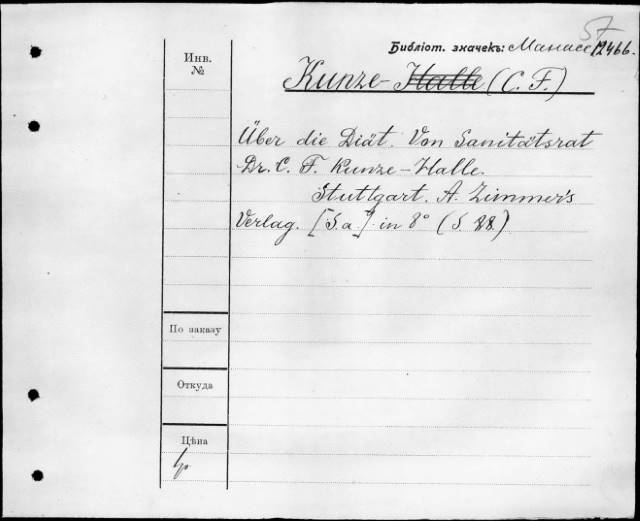 57
Библіот. значекъ: Манасс 12466.
Инв.
№
Kunze-Halle (C. F.)
Über die Diät. Von Sanitätsrat
Dr. C. F. Kunze-Halle.
Stuttgart. A. Zimmer's
Verlag. [S. a.] in 8° (S. 28.)
По заказу
Откуда
Цѣна